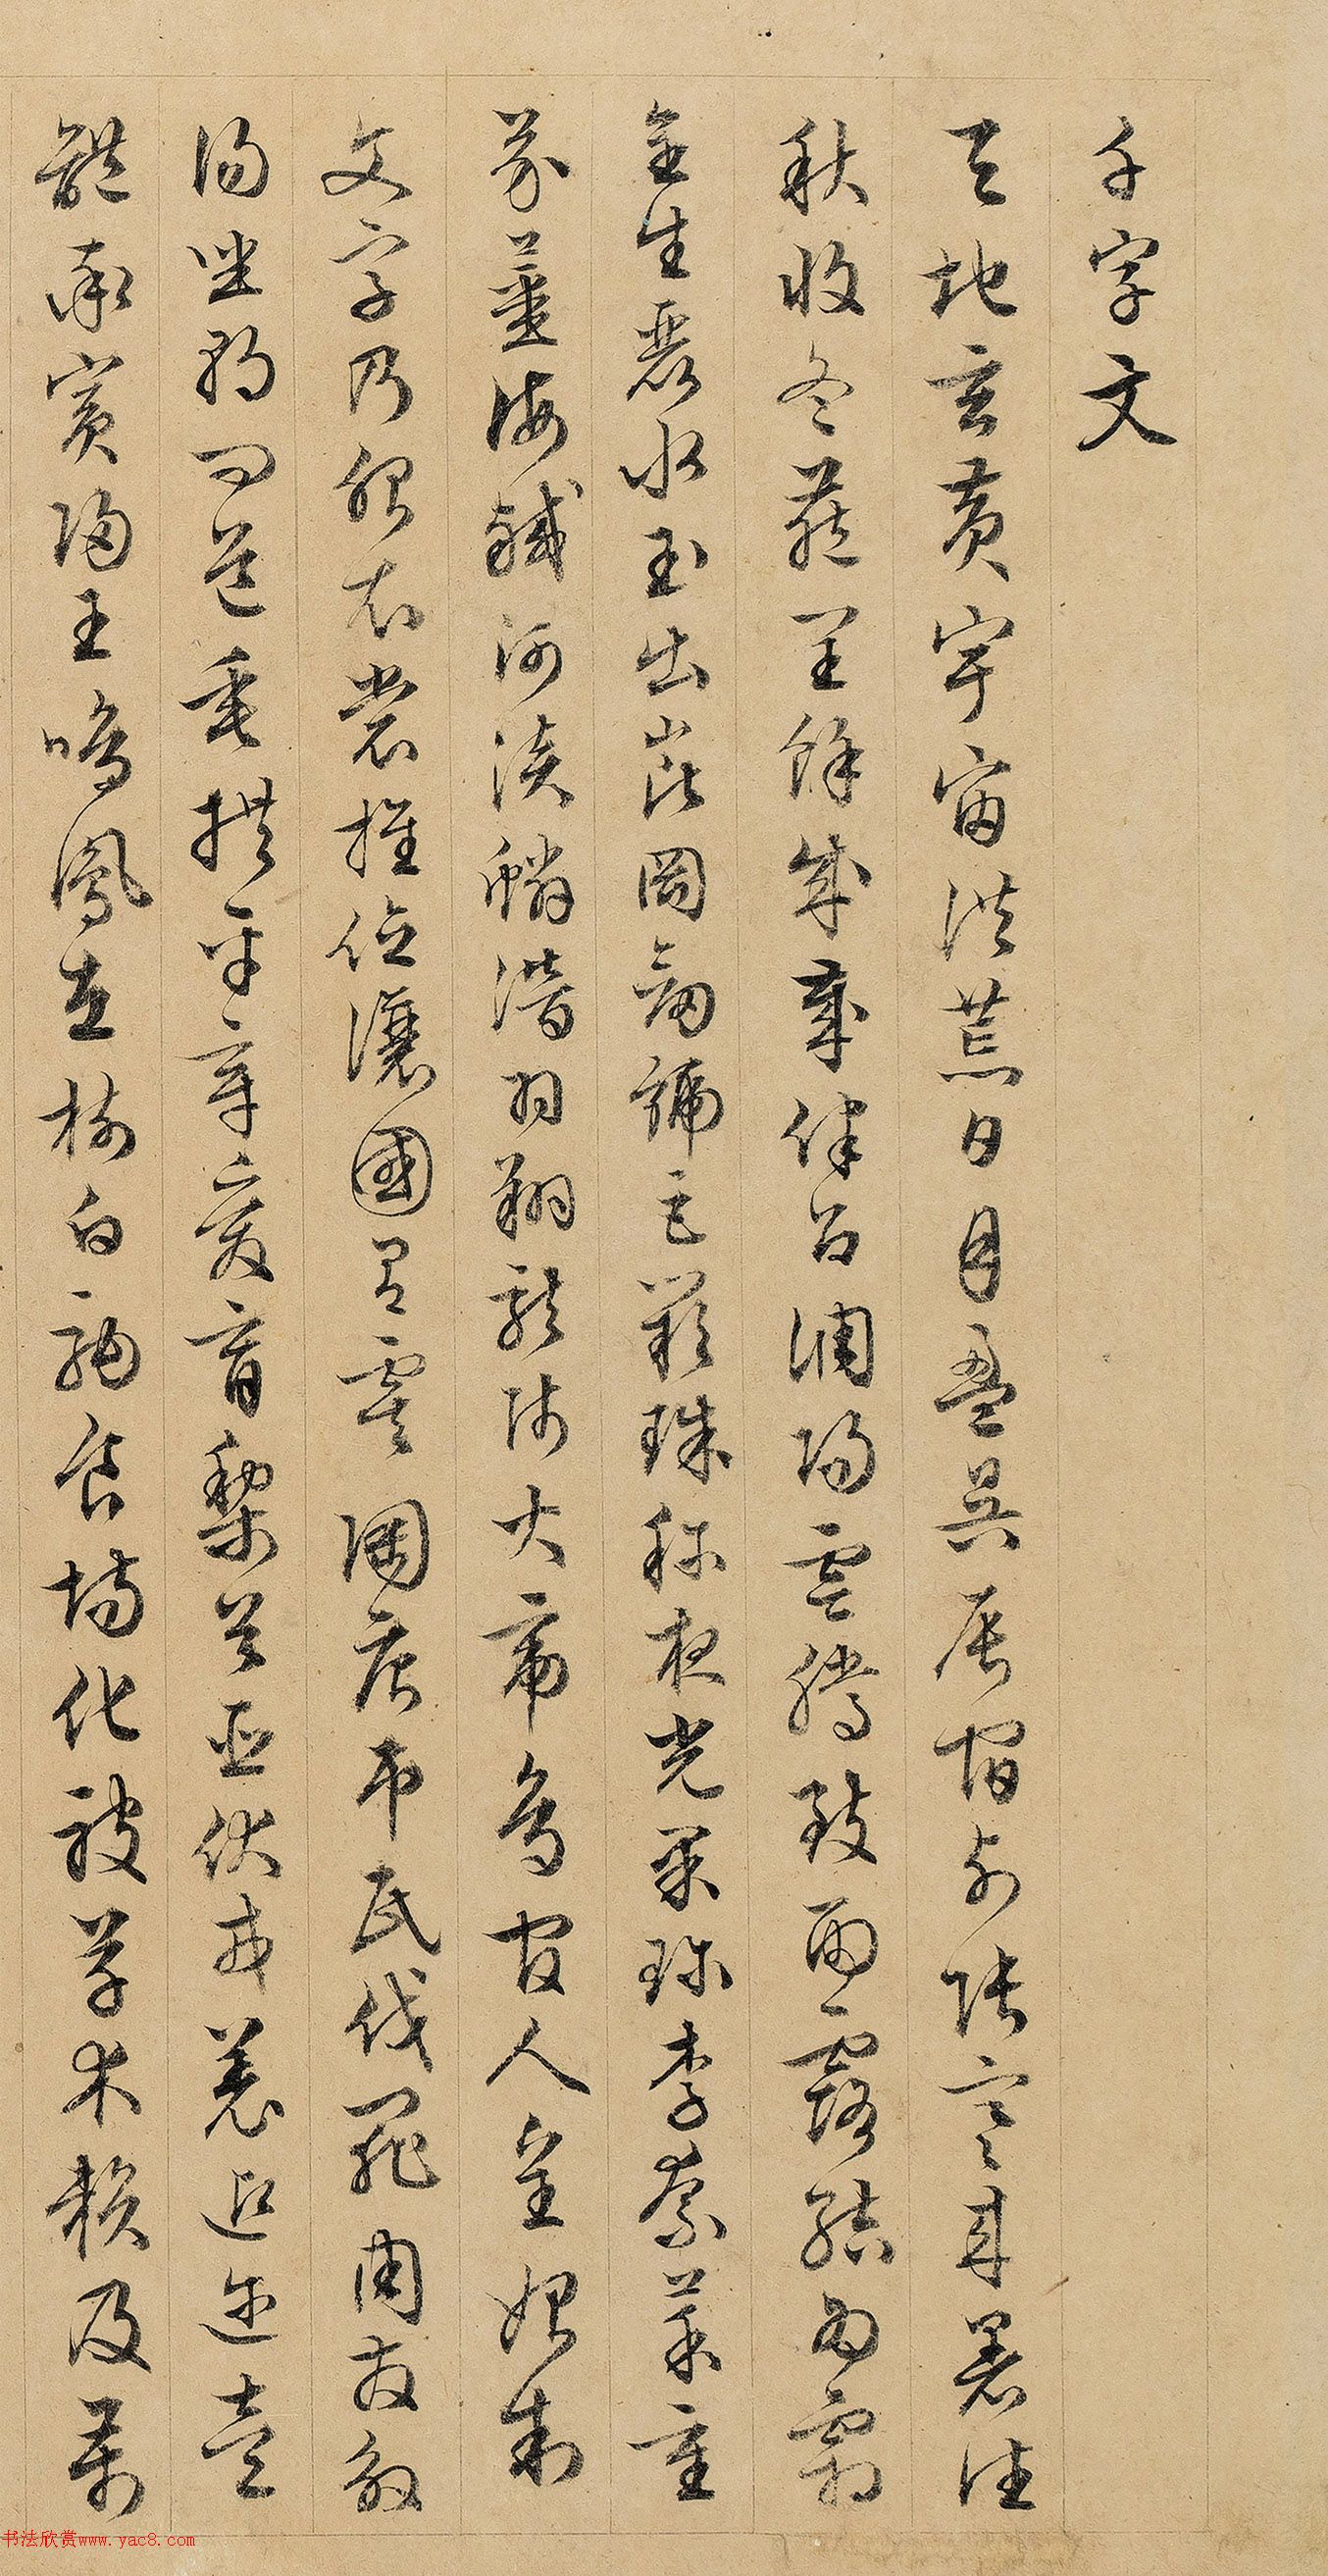 千字文
天地玄黄宇宙洪荒日月盈昃辰宿列張寒来暑往
秋收冬蔵閏餘成歲律召調陽雲騰致雨露結為霜
金生麗水玉出崑岡劒號巨闕珠稱夜光果珍李柰菜重
芥薑海鹹河淡鱗潜羽翔龍師火帝鳥官人皇始制
文字乃服衣裳推位讓國有虞陶唐弔民伐罪周發殷
湯坐朝問道垂拱平章愛育黎首臣伏戎羌遐迩壹
體率賓歸王鳴鳳在樹白駒食場化被草木賴及萬
书法欣赏www.yac8.com